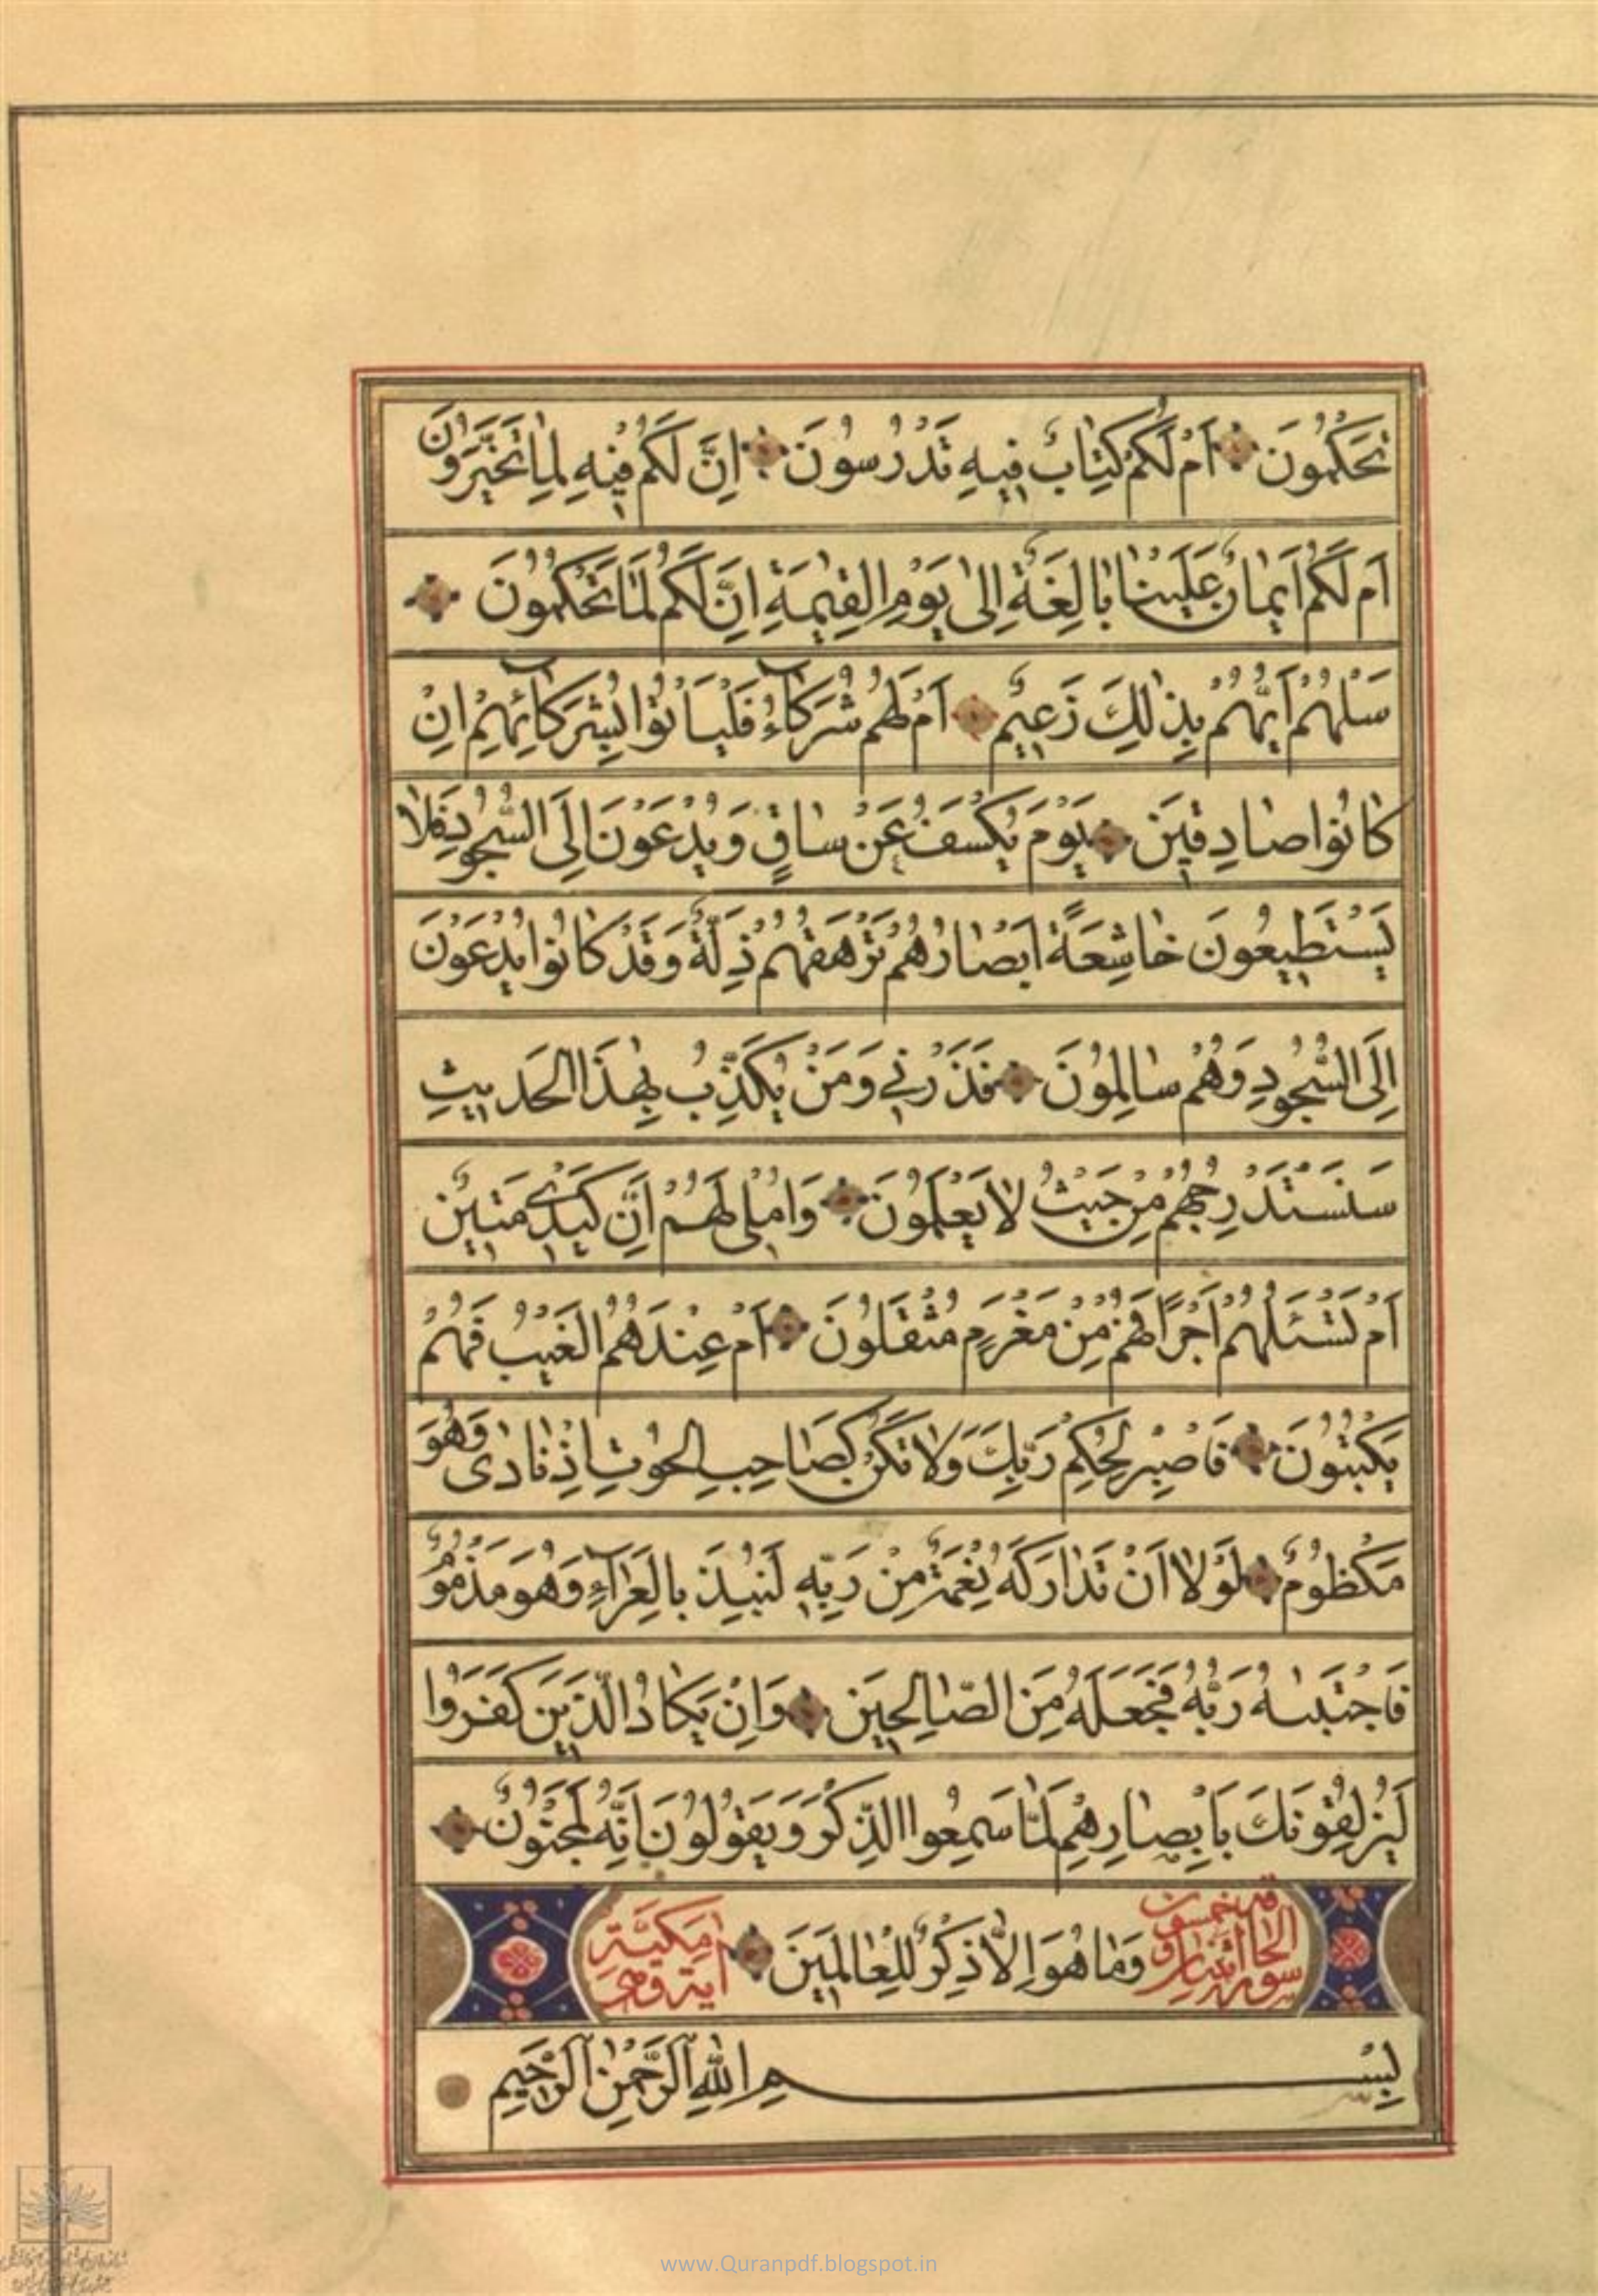 تَحْكُمُونَ اَمْ لَكُمْ كِتٰابٌ فيهِ تَدْرُسُونَ اِنَّ لَكُمْ فيهِ لَمٰا تَخَيَّرُونَ
اَمْ لَكُمْ اَيْمٰانٌ عَلَيْنٰا بٰالِغَةٌ اِلىٰ يَوْمِ الْقِيٰمَةِ اِنَّ لَكُمْ لَمٰا تَحْكُمُونَ
سَلْهُمْ اَيُّهُمْ بِذٰلِكَ زَعيمٌ اَمْ لَهُمْ شُرَكٰآءُ فَلْيَأْتُوا بِشُرَكٰآئِهِمْ اِنْ
كٰانُوا صٰادِقينَ يَوْمَ يُكْشَفُ عَنْ سٰاقٍ وَيُدْعَوْنَ اِلَى السُّجُودِ فَلٰا
يَسْتَطيعُونَ خٰاشِعَةً اَبْصٰارُهُمْ تَرْهَقُهُمْ ذِلَّةٌ وَقَدْ كٰانُوا يُدْعَوْنَ
اِلَى السُّجُودِ وَهُمْ سٰالِمُونَ فَذَرْني وَمَنْ يُكَذِّبُ بِهٰذَا الْحَديثِ
سَنَسْتَدْرِجُهُمْ مِنْ حَيْثُ لٰا يَعْلَمُونَ وَاُمْلي لَهُمْ اِنَّ كَيْدي مَتينٌ
اَمْ تَسْئَلُهُمْ اَجْرًا فَهُمْ مِنْ مَغْرَمٍ مُثْقَلُونَ اَمْ عِنْدَهُمُ الْغَيْبُ فَهُمْ
يَكْتُبُونَ فَاصْبِرْ لِحُكْمِ رَبِّكَ وَلٰا تَكُنْ كَصٰاحِبِ الْحُوتِ اِذْ نٰادىٰ وَهُوَ
مَكْظُومٌ لَوْلٰا اَنْ تَدٰارَكَهُ نِعْمَةٌ مِنْ رَبِّهِ لَنُبِذَ بِالْعَرٰآءِ وَهُوَ مَذْمُومٌ
فَاجْتَبٰيهُ رَبُّهُ فَجَعَلَهُ مِنَ الصّٰالِحينَ وَاِنْ يَكٰادُ الَّذينَ كَفَرُوا
لَيُزْلِقُونَكَ بِاَبْصٰارِهِمْ لَمّٰا سَمِعُوا الذِّكْرَ وَيَقُولُونَ اِنَّهُ لَمَجْنُونٌ
سورة الحاقة اثنان و خمسون وَمٰا هُوَ اِلّٰا ذِكْرٌ لِلْعٰالَمينَ آية وهي مكيّة
بِسْمِ اللهِ الرَّحْمٰنِ الرَّحيمِ
www.Quranpdf.blogspot.in